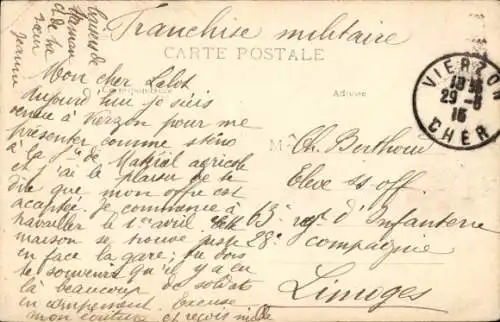 Franchise militaire
CARTE POSTALE
Correspondance
Adresse
VIERZON
29 - 3
15
CHER
Baisers de
Maman
et de ta
sœur
Jeanne
Mon cher Lalot
Aujourd'hui je suis
venue à Vierzon pour me
présenter comme sténo
à la Sté de Matériel agricole
et j'ai le plaisir de te
dire que mon offre est
acceptée. Je commence à
travailler le 1er avril. Cette
maison se trouve juste
en face la gare ; tu dois
te souvenir qu'il y a eu
là beaucoup de soldats
en campement. Excuse
mon écriture et reçois mille
M Ch. Berthoué
Elève ss off.
63e regt d'Infanterie
28e compagnie
Limoges